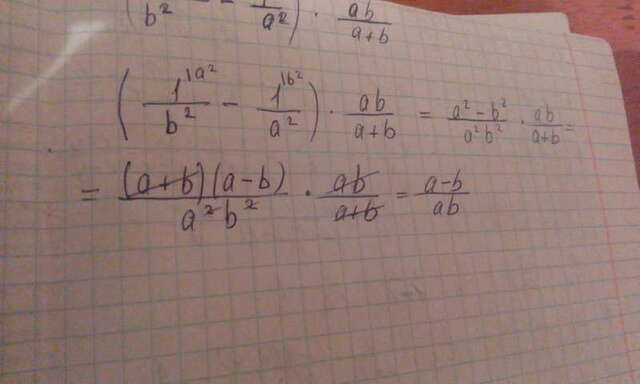 (1/b² - 1/a²) · ab/(a+b)
(1^{|a²}/b² - 1^{|b²}/a²) · ab/(a+b) = (a² - b²)/(a²b²) · ab/(a+b) =
= ((a+b)(a-b))/(a²b²) · ab/(a+b) = (a-b)/(ab)